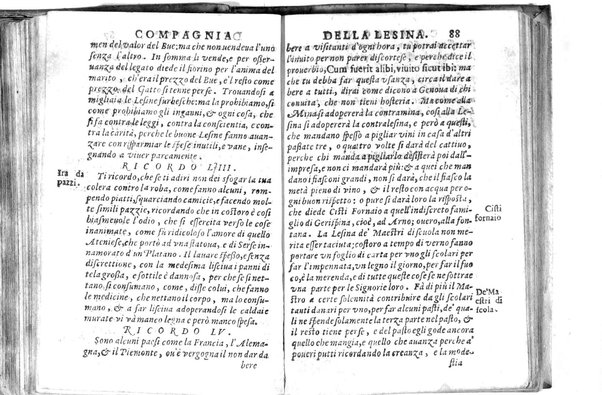 COMPAGNIA
men del valor del Bue: ma che non uendeua l'uno
senza l'altro. In somma il vende, e per osser-
uanza del legato diede il fiorino per l'anima del
marito, ch'era il prezzo del Bue, e'l resto come
prezzo del Gatto si tenne per se. Trouandosi a
migliaia le Lesine furbesche: ma la prohibiamo, sì
come prohibiamo gli inganni, & ogni cosa, che
si fà contra le leggi, contra la conscientia, e con-
tra la carità, perche le buone Lesine fanno auan-
zare con risparmiar le spese inutili, e vane, inse-
gnando a viuer parcamente.
RICORDO LIIII.
Ira da
pazzi.
Ti ricordo, che se ti adiri non dei sfogar la tua
colera contro la roba, come fanno alcuni, rom-
pendo piatti, squarciando camicie, e facendo mol-
te simili pazzie, ricordando che in costoro è così
biasimeuole l'odio, che si essercita verso le cose
inanimate, come fù ridicoloso l'amore di quello
Ateniese, che portò ad vna statoua, e di Serse in-
namorato d'un Platano. Il lauare spesso, e senza
discrettione, con la medesima lisciua i panni di
tela grossa, e sottile è dannoso, per che se si net-
tano, si consumano, come, disse colui, che fanno
le medicine, che nettano il corpo, ma lo consu-
mano, & a far lisciua adoperando le caldaie
murate vi và manco legna e però manco spesa.
RICORDO LV.
Sono alcuni paesi come la Francia, l'Alema-
gna, & il Piemonte, ou'è vergogna il non dar da
bere
DELLA LESINA. 88
bere a visitanti d'ogni hora, tu potrai accettar
l'inuito per non parer discortese, e perche dice il
prouerbio, Cum fuerit alibi, viuito sicut ibi: ma
che tu debba far questa vsanza, circa il dare a
bere a tutti, dirai come dicono a Genoua di chi
conuita, che non tieni hosteria. Ma come alla
Minasi adopererà la contramina, così alla Le-
sina si adopererà la contralesina, e però a questi,
che mandano spesso a pigliar vini in casa d'altri
passate tre, o quattro volte si darà del cattiuo,
perche chi manda a pigliarlo desisterà poi dall'im-
presa, e non ci mandarà più: & a quei che man
dano i fiasconi grandi, non si darà il fiasco, che la
metà pieno di vino, & il resto con acqua per o-
gni buon rispetto: o pure si darà loro la risposta,
che diede Cisti Fornaio a quell'indiscreto fami-
glio di Gerispina, cioè, ad Arno; ouero, alla fon-
Cisti
fornaio
tana. La Lesina de' Maestri di scuola non me-
rita esser taciuta; costoro a tempo di verno fanno
portare vn foglio di carta per vno gli scolari per
far l'impennata, vn legno il giorno, per far il fuo
co, e la merenda, e di tutte queste cose se ne sottrae
vna parte per le Signorie loro. Fà di più il Ma-
De' Ma
estri di
scola.
estro a certe solennità contribuire da gli scolari
tanti danari per vno, per far alcuni pasti, de' qua
li ne spende solamente la terza parte nel pasto, &
il resto tiene per se, e del pasto egli gode ancora
quello che mangia, e quello che auanza perche a'
poueri putti ricordando la creanza, e la mode-
stia